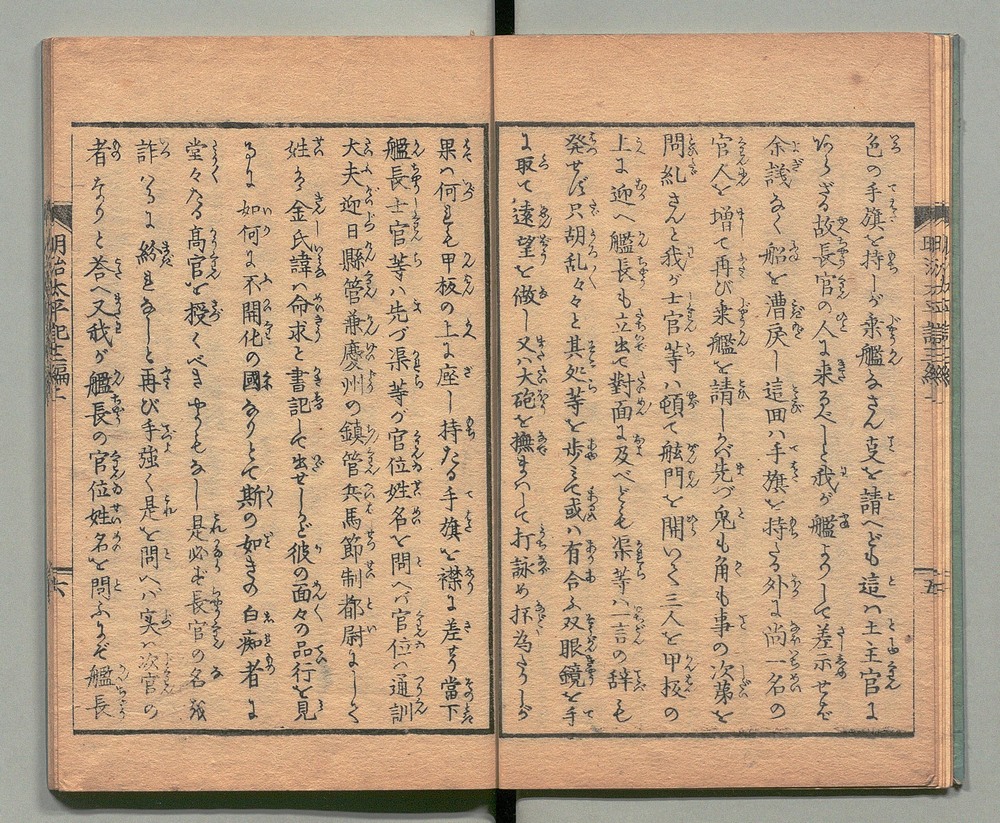 色の手旗を持しが乗艦なさん支を請へども這ハ王主官に
あらざる故長官の人に来るべしと我が艦よりして差示せバ
余議なく船を漕戻し這回ハ手旗を持たる外に尚一名の
官人を増て再び来艦を請しかバ先づ兎も角も事の次第を
問糺さんと我が士官等ハ頓て舷門を開いて三人を甲板の
上に迎へ艦長も立出て對面に及べども渠等ハ一言の辞も
発せず只胡乱々々と其処等を歩ミて或ハ有合ふ双眼鏡を手
に取て遠望を做し又ハ大砲を撫まハして打詠め抔為たりしが
果ハ何れも甲板の上に座し持たる手旗を襟に差す當下
艦長士官等ハ先づ渠等が官位姓名を問へバ官位ハ通訓
大夫迎日縣管兼慶州の鎮管兵馬節制都尉にして
姓ハ金氏諱ハ命求と書記して出せしかど彼の面々の品行を見
るに如何に不開化の國なりとて斯の如きの白痴者に
堂々たる高官を授くべきやうもなし是必ず長官の名を
詐いつるに紛れなしと再び手強く是を問へバ実ハ次官の
者なりと答へ又我が艦長の官位姓名を問ふにぞ艦長
明治太平記 三編上
六
五